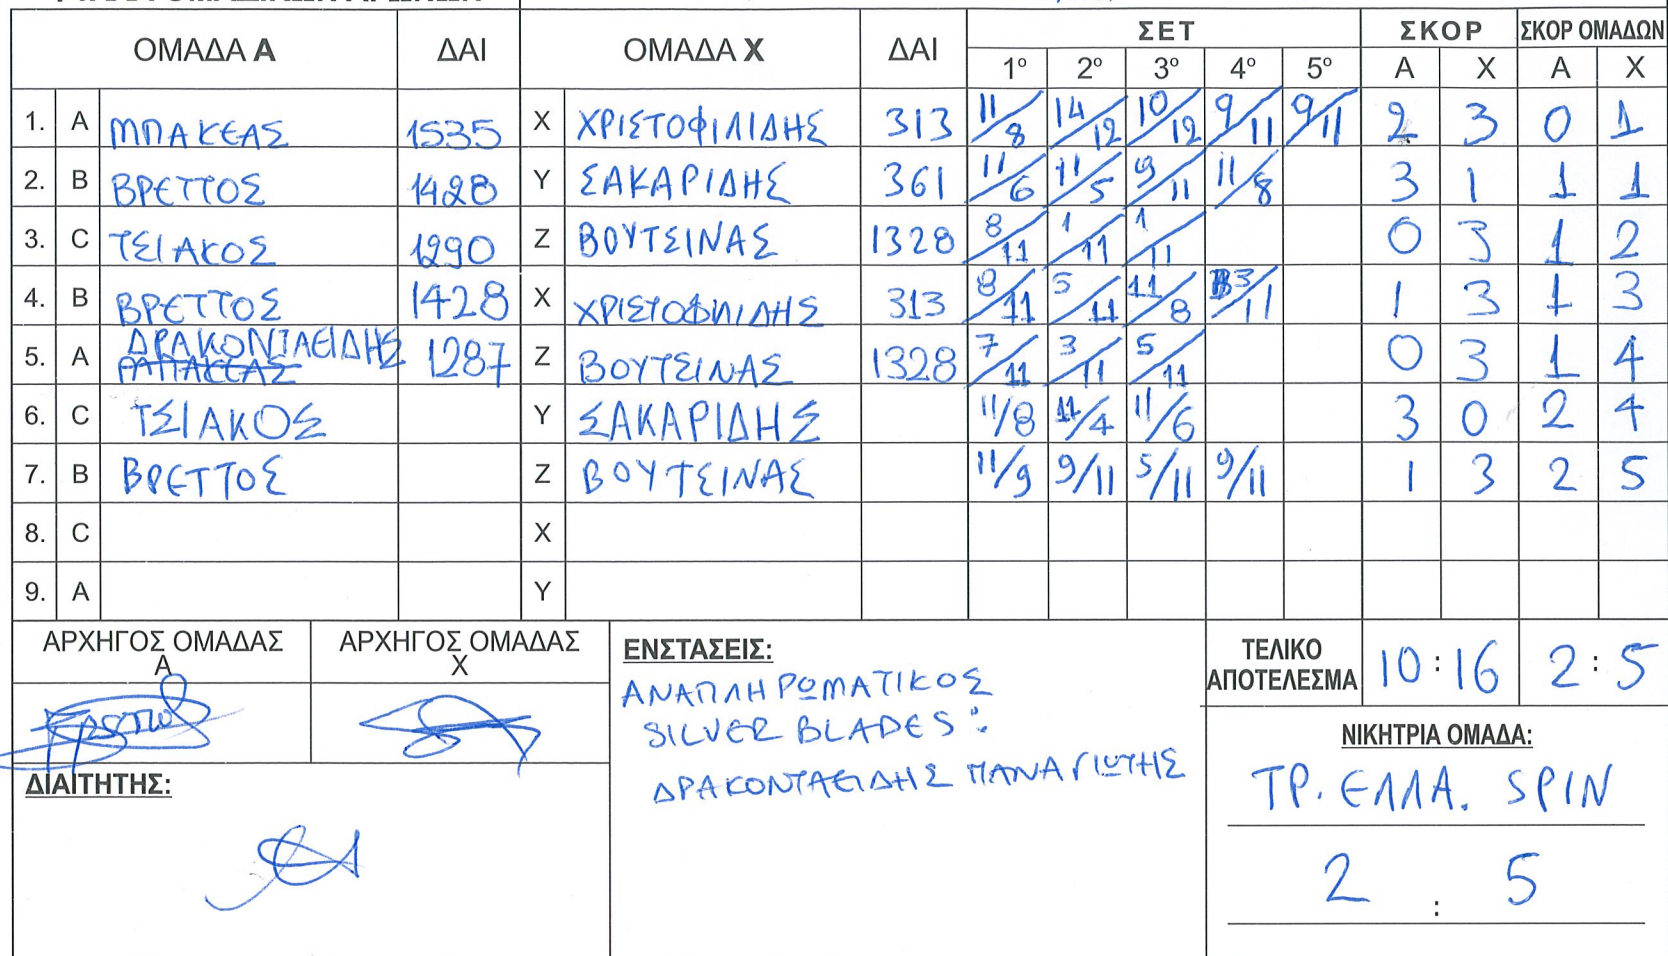 ΟΜΑΔΑ Α ΔΑΙ ΟΜΑΔΑ Χ ΔΑΙ ΣΕΤ ΣΚΟΡ ΣΚΟΡ ΟΜΑΔΩΝ
1º 2º 3º 4º 5º Α Χ Α Χ
1. A ΜΠΑΚΕΑΣ 1535 X ΧΡΙΣΤΟΦΙΛΙΔΗΣ 313 11/8 14/12 10/12 9/11 9/11 2 3 0 1
2. B ΒΡΕΤΤΟΣ 1428 Y ΣΑΚΑΡΙΔΗΣ 361 11/6 11/5 9/11 11/8 3 1 1 1
3. C ΤΣΙΑΚΟΣ 1290 Z ΒΟΥΤΣΙΝΑΣ 1328 8/11 1/11 1/11 0 3 1 2
4. B ΒΡΕΤΤΟΣ 1428 X ΧΡΙΣΤΟΦΙΛΙΔΗΣ 313 8/11 5/11 11/8 3/11 1 3 1 3
5. A ΔΡΑΚΟΝΤΑΕΙΔΗΣ 1287 Z ΒΟΥΤΣΙΝΑΣ 1328 7/11 3/11 5/11 0 3 1 4
ΜΠΑΚΕΑΣ
6. C ΤΣΙΑΚΟΣ Y ΣΑΚΑΡΙΔΗΣ 11/8 11/4 11/6 3 0 2 4
7. B ΒΡΕΤΤΟΣ Z ΒΟΥΤΣΙΝΑΣ 11/9 9/11 5/11 9/11 1 3 2 5
8. C X
9. A Y
ΑΡΧΗΓΟΣ ΟΜΑΔΑΣ Α ΑΡΧΗΓΟΣ ΟΜΑΔΑΣ Χ
ΕΝΣΤΑΣΕΙΣ:
ΑΝΑΠΛΗΡΩΜΑΤΙΚΟΣ
SILVER BLADES :
ΔΡΑΚΟΝΤΑΕΙΔΗΣ ΠΑΝΑΓΙΩΤΗΣ
ΤΕΛΙΚΟ ΑΠΟΤΕΛΕΣΜΑ 10 : 16 2 : 5
ΝΙΚΗΤΡΙΑ ΟΜΑΔΑ:
ΤΡ. ΕΛΛΑ. SPIN
2 : 5
ΔΙΑΙΤΗΤΗΣ: